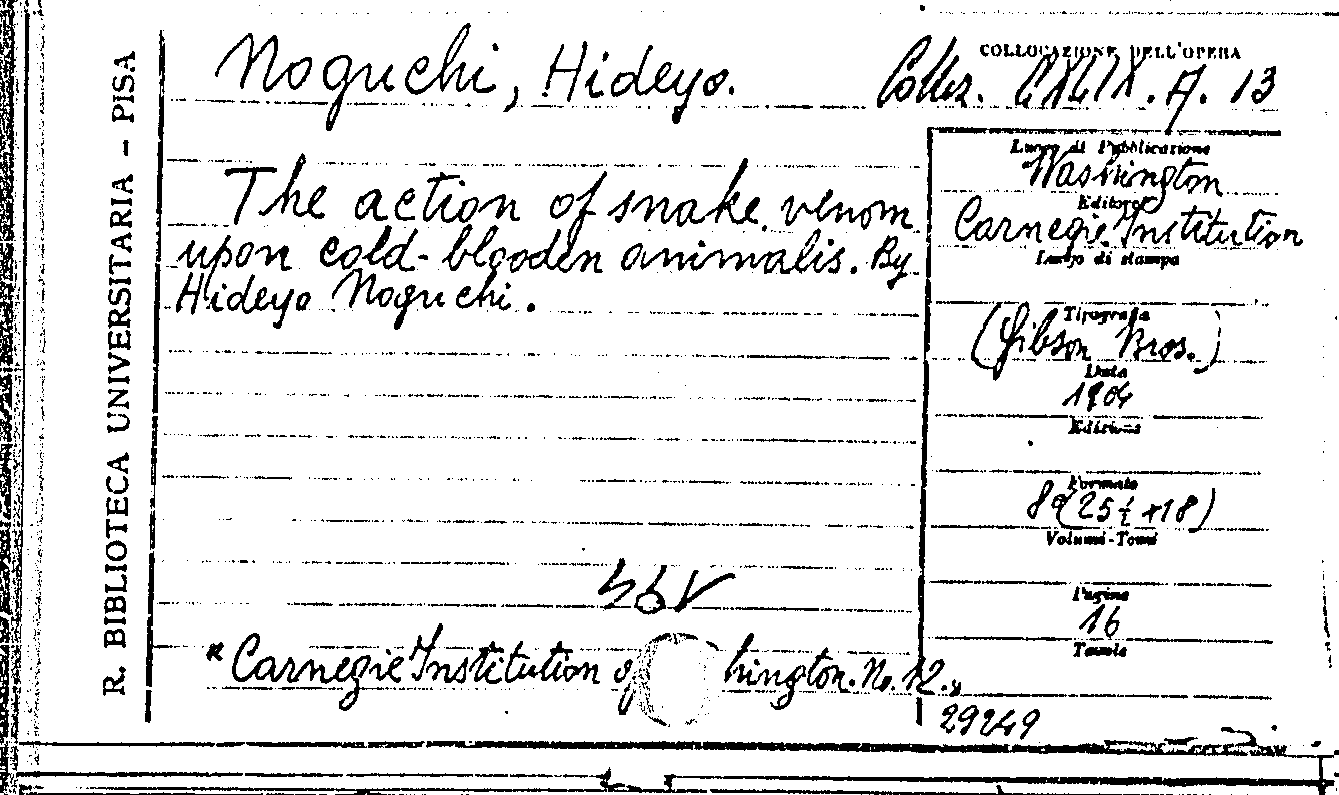 R. BIBLIOTECA UNIVERSITARIA - PISA
Noguchi, Hideyo.
COLLOCAZIONE DELL'OPERA
Collez. CXLIX. A. 13
The action of snake venom
upon cold-blooden animalis. By
Hideyo Noguchi.
Luogo di Pubblicazione
Washington
Editore
Carnegie Institution
Luogo di stampa
Tipografia
(Gibson Bros.)
Data
1904
Edizione
Formato
8º (25½ × 18)
Volumi-Tomi
Pagine
16
Tavole
"Carnegie Institution of hington. No. 12."
29249